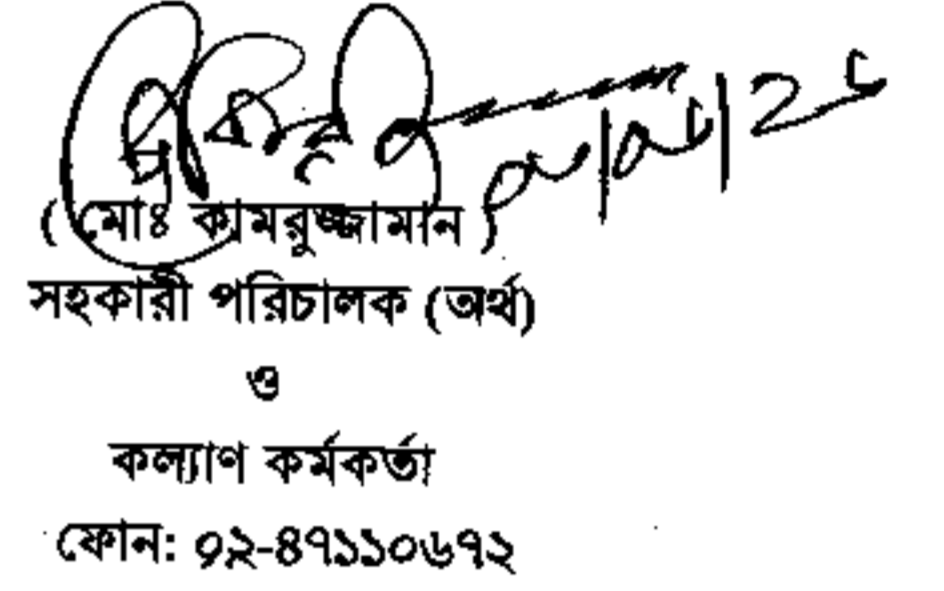 ( মোঃ কামরুজ্জামান )
সহকারী পরিচালক (অর্থ)
ও
কল্যাণ কর্মকর্তা
ফোন: ০২-৪৭১১০৬৭২